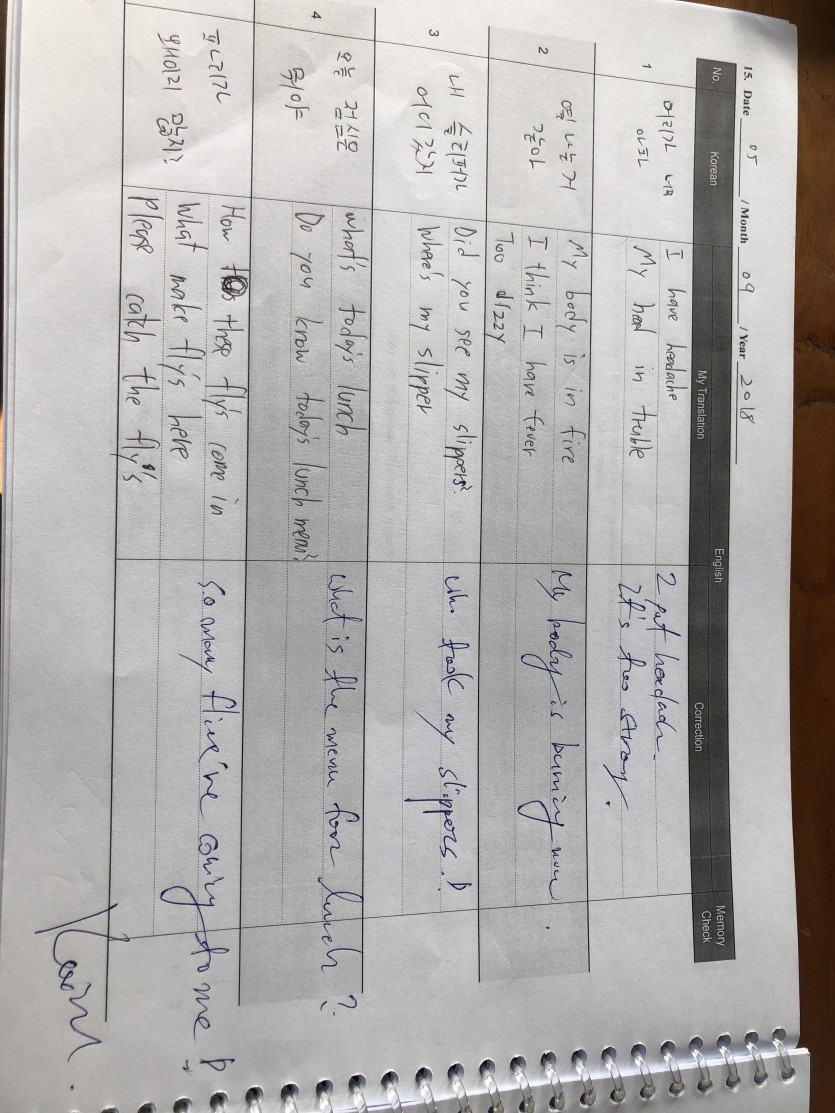 15. Date 05 / Month 09 / Year 2018
No. Korean English Memory Check
My Translation Correction
1 머리가 너무 아프다
I have headache
My head in truble
headach.
It's too strong.
2 열 나는 거 같아
My body is in fire
I think I have fever
Too dizzy
My body is burning now.
3 내 슬리퍼가 어디 갔지
Did you see my slippers?
Where's my slipper
who took my slippers!
4 오늘 점심은 뭐야
what's today's lunch
Do you know today's lunch menu?
What is the menu for lunch?
파리가
왜이리 많지?
How these fly's come in
What make fly's here
please catch the fly's
So many coming to me!